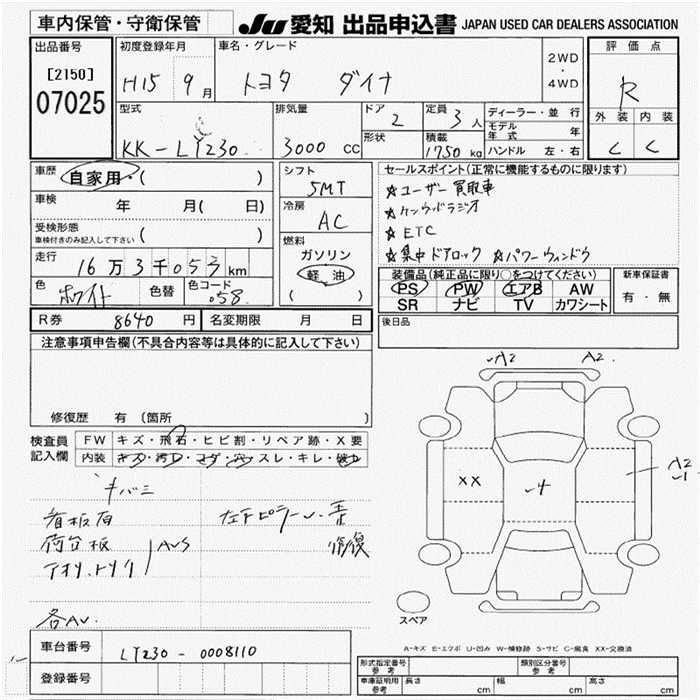 車内保管・守衛保管
JU 愛知 出品申込書 JAPAN USED CAR DEALERS ASSOCIATION
出品番号
[2150]
07025
初度登録年月
H15 年 9 月
車名・グレード
トヨタ ダイナ
2WD
・
4WD
評価点
R
外装 内装
C C
型式
KK-LY230
排気量
3000 CC
ドア
2
形状
定員
3人
積載
1750 kg
ディーラー・並行
モデル年式 年
ハンドル 左・右
車歴
自家用・( )
車検 年 月( 日)
受検形態
車検付きのみ記入して下さい ( )
走行
16万3千053km
色
ホワイト
色替
色コード
058
シフト
5MT
冷房
AC
燃料
ガソリン
軽油
( )
セールスポイント(正常に機能するものに限ります)
☆ユーザー買取車
☆ケンウッドラジオ
☆ETC
☆集中ドアロック ☆パワーウィンドウ
装備品(純正品に限り○をつけてください)
PS PW エアB AW
SR ナビ TV カワシート
新車保証書
有・無
後日品
R券 8640 円
名変期限 月 日
注意事項申告欄(不具合内容等は具体的に記入して下さい)
修復歴 有 〔箇所 〕
検査員記入欄
FW キズ・飛石・ヒビ割・リペア跡・X要
内装 キズ・汚れ・コゲ・穴・スレ・キレ・破れ
キバミ
看板有
荷台板
アオリ、トリイ
AUS
各AU.
左F ピラーU・歪
修復
A2 A2
XX
4
A2
スペア
A-キズ E-エクボ U-凹み W-補修跡 S-サビ C-腐食 XX-交換済
車台番号
LY230-0008110
登録番号
型式指定番号
参考
類別区分番号
参考
車庫証明用
参考
長さ cm
幅 cm
高さ cm